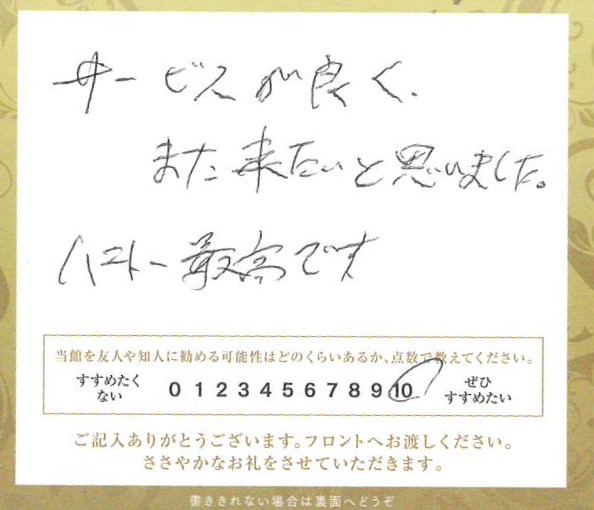 サービスが良く、
また来たいと思いました。
ハニトー最高です
当館を友人や知人に勧める可能性はどのくらいあるか、点数で教えてください。
すすめたく
ない
0 1 2 3 4 5 6 7 8 9 10
ぜひ
すすめたい
ご記入ありがとうございます。フロントへお渡しください。
ささやかなお礼をさせていただきます。
書ききれない場合は裏面へどうぞ